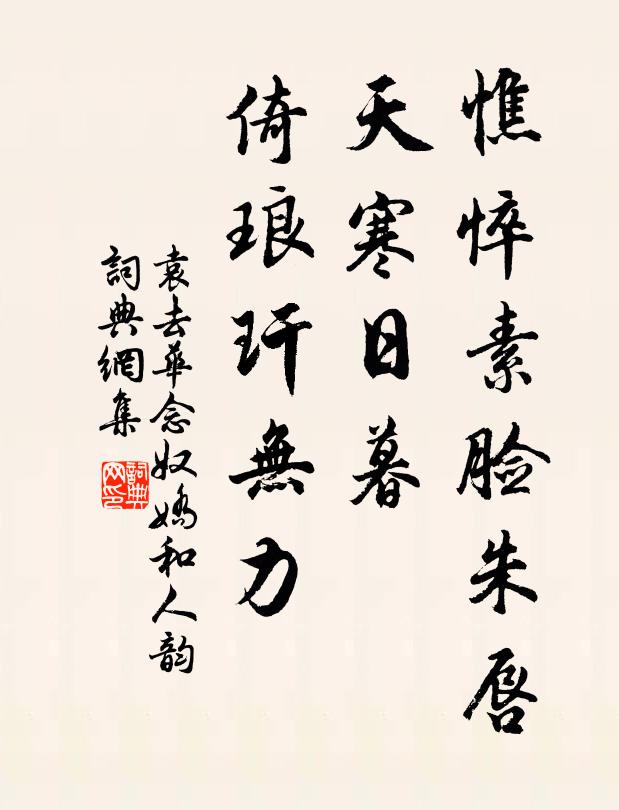 憔悴素脸朱唇
天寒日暮
倚琅玕無力
袁去華念奴嬌和人韵
詞典網集
詞典网印